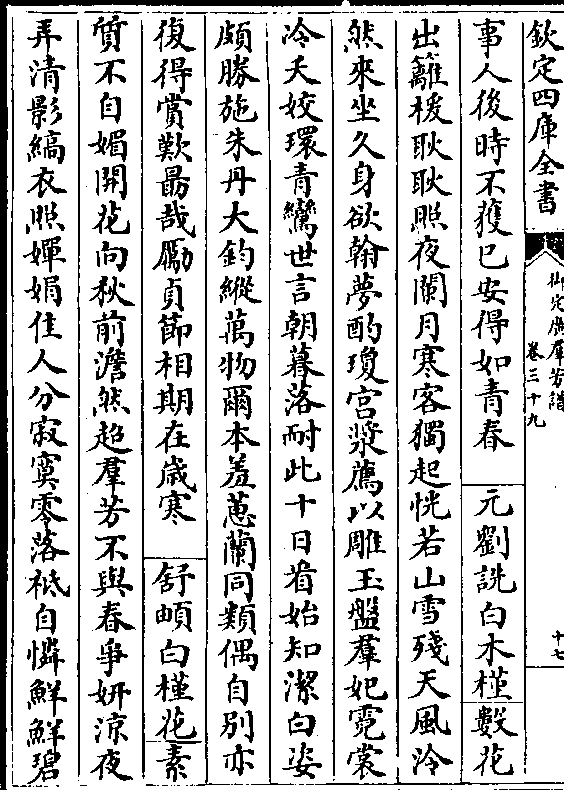 欽定四庫全書
御定廣羣芳譜
卷三十九
十七
事人後時不獲已安得如青春 元劉詵白木槿數花
出籬援耿耿照夜闌月寒客獨起恍若山雪殘天風泠
然來坐久身欲翰夢酌瓊宫漿薦以雕玉盤羣妃霓裳
冷夭姣環青鸞世言朝暮落耐此十日看始知潔白姿
頗勝施朱丹大鈞縱萬物爾本羞蕙蘭同類偶自别亦
復得賞歎勗哉勵貞節相期在歳寒 舒頔白槿花素
質不自媚開花向秋前澹然超羣芳不與春爭妍涼夜
弄清影縞衣照嬋娟佳人分寂寞零落祗自憐鮮鮮碧